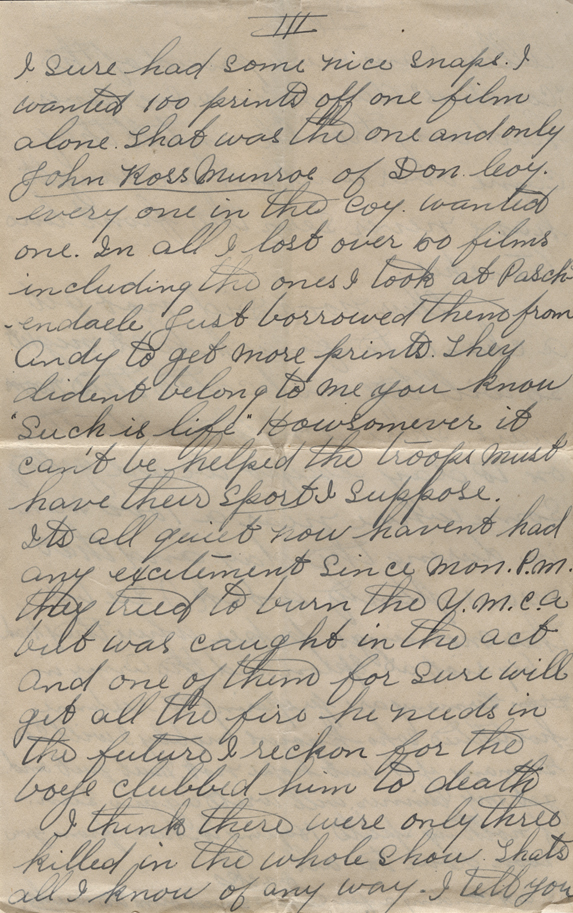 III
I sure had some nice snaps. I
wanted 100 prints off one film
alone. That was the one and only
John Ross Munroe of Don. Coy.
every one in the Coy. wanted
one. In all I lost over 60 films
including the ones I took at Pasch-
-endaele, Just borrowed them from
Andy to get more prints. They
dident belong to me you know
"Such is life" Howsomever it
can't be helped the troops must
have their sport I suppose.
Its all quiet now havent had
any excitement since Mon. P.m.
they tried to burn the Y.m.c.a
but was caught in the act
and one of them for sure will
get all the fire he needs in
the future I reckon for the
boys clubbed him to death
I think there were only three
killed in the whole show. Thats
all I know of any way. I tell you